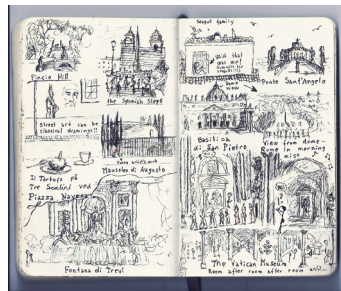 Pincio Hill
the Spanish Steps
Street art can be
classical drawings!!
Mausoleo di Augusto
Il Tartufo på
Tre Scalini ved
Piazza Navona
Fontana di Trevi
family
Ponte Sant'Angelo
Dome
view
Basilica
San Pietro
View from dome -
Rome in morning
mist
The Vatican Museum
Room after room after room until...